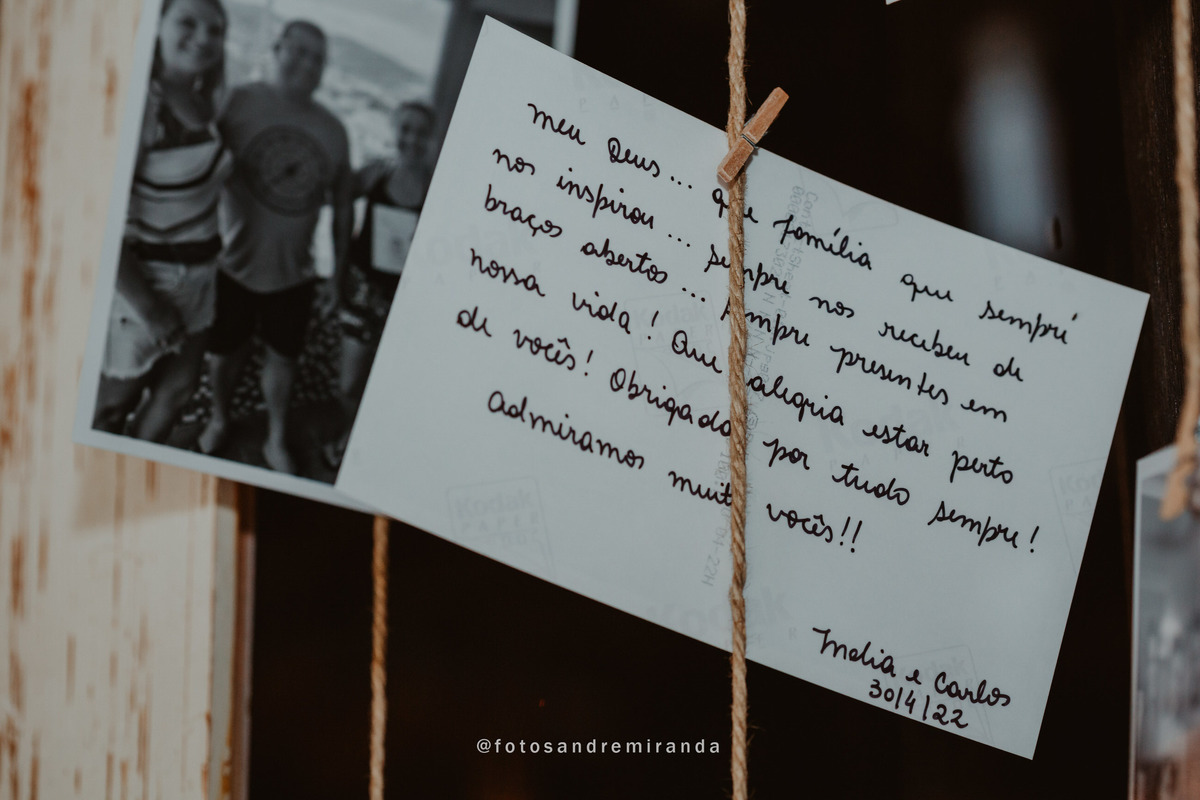 meu Deus... que família que sempre
nos inspirou... sempre nos recebeu de
braços abertos... sempre presentes em
nossa vida! Que alegria estar perto
de vocês! Obrigado por tudo sempre!
Admiramos muito vocês!!
e Carlos
30/4/22
Kodak
PAPER
Kodak
@fotosandremiranda